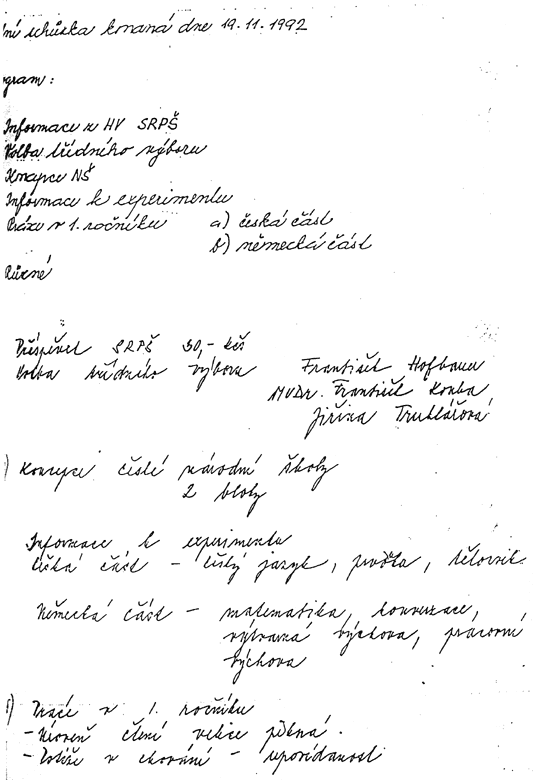 ní schůzka konaná dne 19.11.1992
gram:
Informace z HV SRPŠ
Volba třídního výboru
Koncepce NŠ
Informace k experimentu
Práce v 1. ročníku a) česká část
b) německá část
Různé
Příspěvek SRPŠ 30,- Kčs
Volba třídního výboru František Hofbauer
MVDr. František Kouba
Jiřina Truhlářová
) Koncepce české národní školy
2 bloky
Informace k experimentu
česká část - český jazyk, prvouka, tělocvik
Německá část - matematika, konverzace,
výtvarná výchova, pracovní
výchova
) Práce v 1. ročníku
- Úroveň čtení velice pěkná.
- Potíže v chování - neporádanost